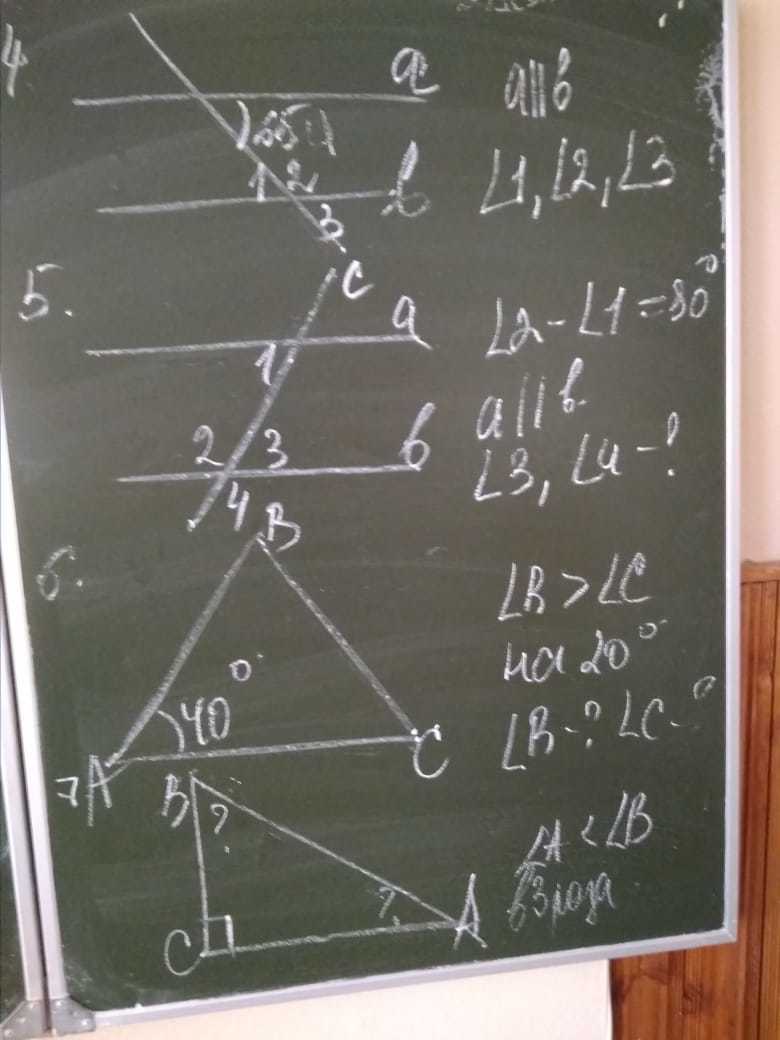 4
a
a||b
1 2
b
∠1, ∠2, ∠3
3
5.
c
a
∠2 - ∠1 = 80°
1
a || b
2 3
b
∠3, ∠4 - ?
4
6.
B
∠B > ∠C
на 20°
40°
∠B - ? ∠C - ?
A
C
7
B
?
∠A < ∠B
в 3 раза
?
C
A